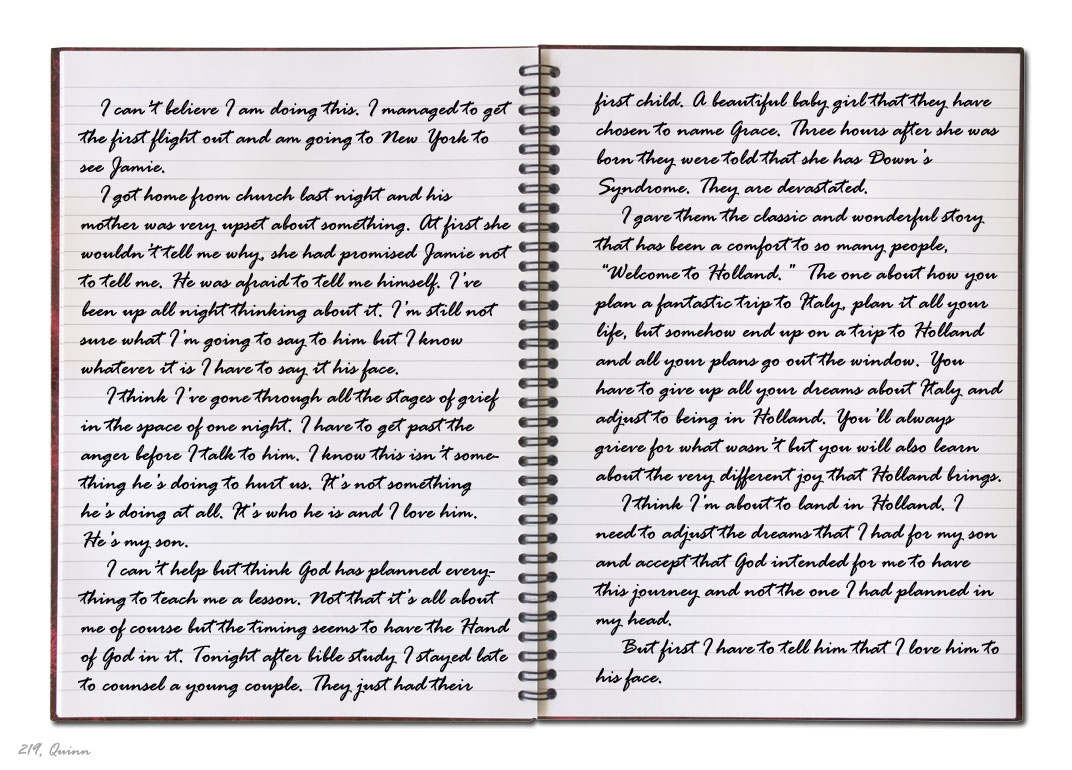 I can't believe I am doing this. I managed to get
the first flight out and am going to New York to
see Jamie.
I got home from church last night and his
mother was very upset about something. At first she
wouldn't tell me why, she had promised Jamie not
to tell me. He was afraid to tell me himself. I've
been up all night thinking about it. I'm still not
sure what I'm going to say to him but I know
whatever it is I have to say it his face.
I think I've gone through all the stages of grief
in the space of one night. I have to get past the
anger before I talk to him. I know this isn't some-
thing he's doing to hurt us. It's not something
he's doing at all. It's who he is and I love him.
He's my son.
I can't help but think God has planned every-
thing to teach me a lesson. Not that it's all about
me of course but the timing seems to have the Hand
of God in it. Tonight after bible study I stayed late
to counsel a young couple. They just had their
first child. A beautiful baby girl that they have
chosen to name Grace. Three hours after she was
born they were told that she has Down's
Syndrome. They are devastated.
I gave them the classic and wonderful story
that has been a comfort to so many people,
"Welcome to Holland." The one about how you
plan a fantastic trip to Italy, plan it all your
life, but somehow end up on a trip to Holland
and all your plans go out the window. You
have to give up all your dreams about Italy and
adjust to being in Holland. You'll always
grieve for what wasn't but you will also learn
about the very different joy that Holland brings.
I think I'm about to land in Holland. I
need to adjust the dreams that I had for my son
and accept that God intended for me to have
this journey and not the one I had planned in
my head.
But first I have to tell him that I love him to
his face.
219, Quinn